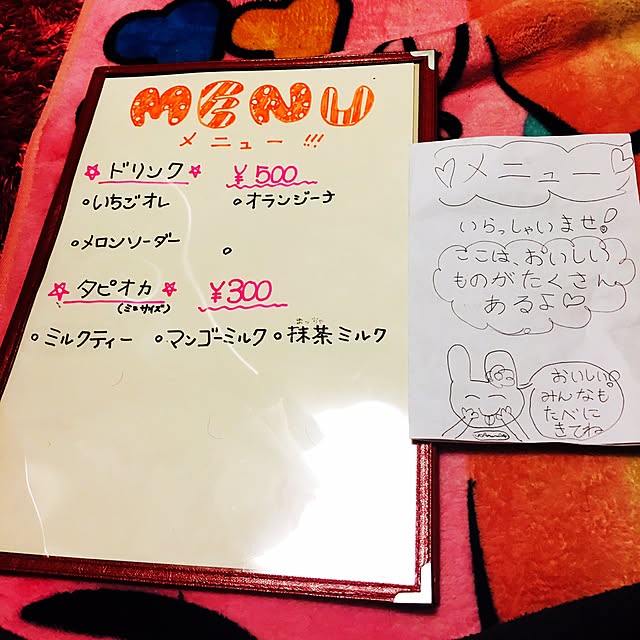 MENU
メニュー!!!
☆ドリンク☆ ¥500
○いちごオレ ○オランジーナ
○メロンソーダー ○
☆タピオカ☆ ¥300
(ミニサイズ)
○ミルクティー ○マンゴーミルク ○抹茶ミルク
まっちゃ
♡メニュー♡
いらっしゃいませ!
ここは、おいしい
ものがたくさん
あるよ♡
おいしい。
みんなも
たべに
きてね